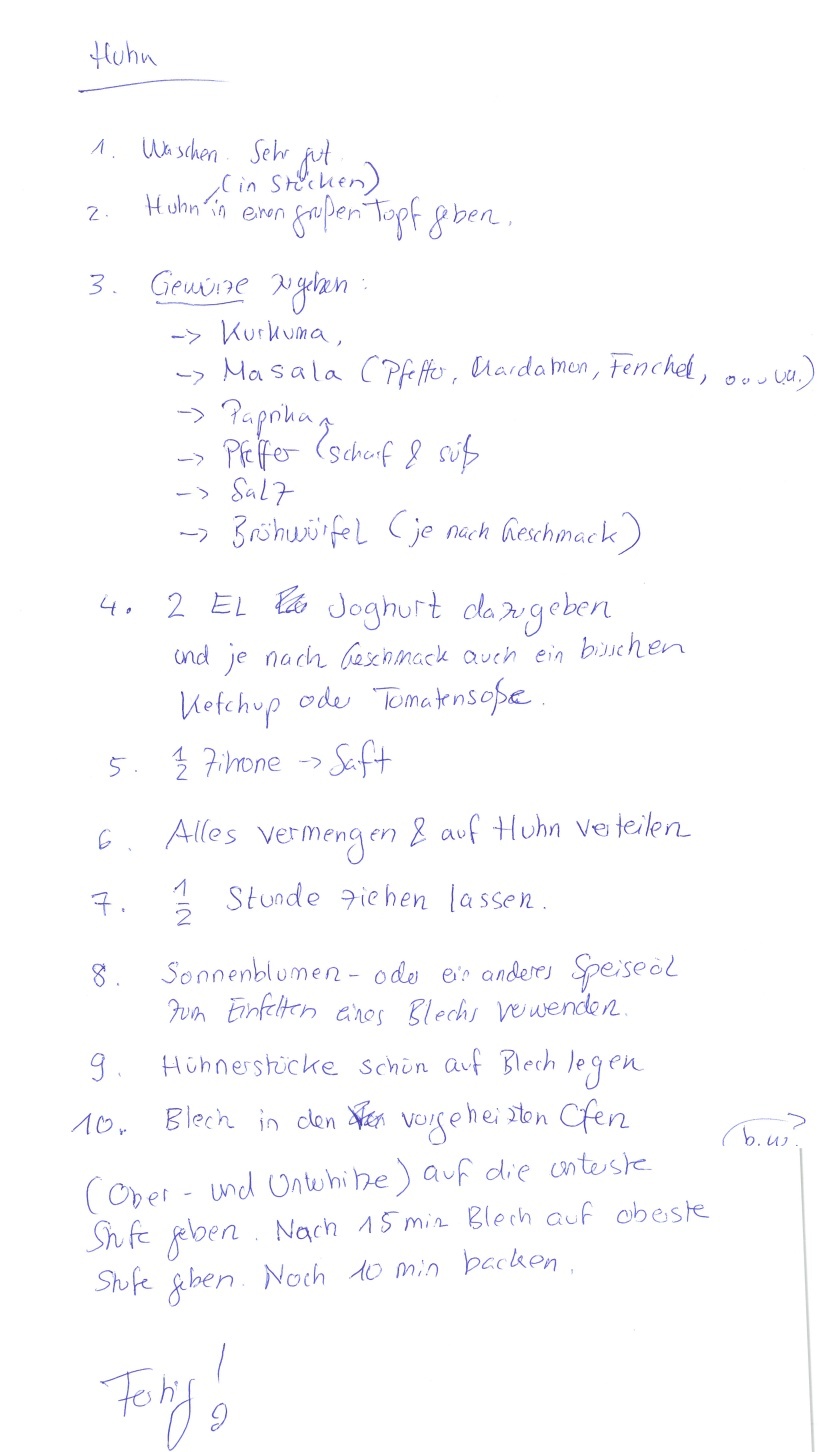 Huhn
1. Waschen. Sehr gut.
(in Stücken)
2. Huhn in einen großen Topf geben.
3. Gewürze zugeben:
-> Kurkuma,
-> Masala (Pfeffer, Kardamon, Fenchel, ... uu.)
-> Paprika
-> Pfeffer (scharf & süß
-> Salz
-> Brühwürfel (je nach Geschmack)
4. 2 EL Joghurt dazugeben
und je nach Geschmack auch ein bisschen
Ketchup oder Tomatensoße.
5. 1/2 Zitrone -> Saft
6. Alles vermengen & auf Huhn verteilen
7. 1/2 Stunde ziehen lassen.
8. Sonnenblumen- oder ein anderes Speiseöl
zum Einfetten eines Blechs verwenden.
9. Hühnerstücke schön auf Blech legen
10. Blech in den vorgeheizten Ofen
b.w.?
(Ober- und Unterhitze) auf die unterste
Stufe geben. Nach 15 min Blech auf oberste
Stufe geben. Noch 10 min backen.
Fertig!